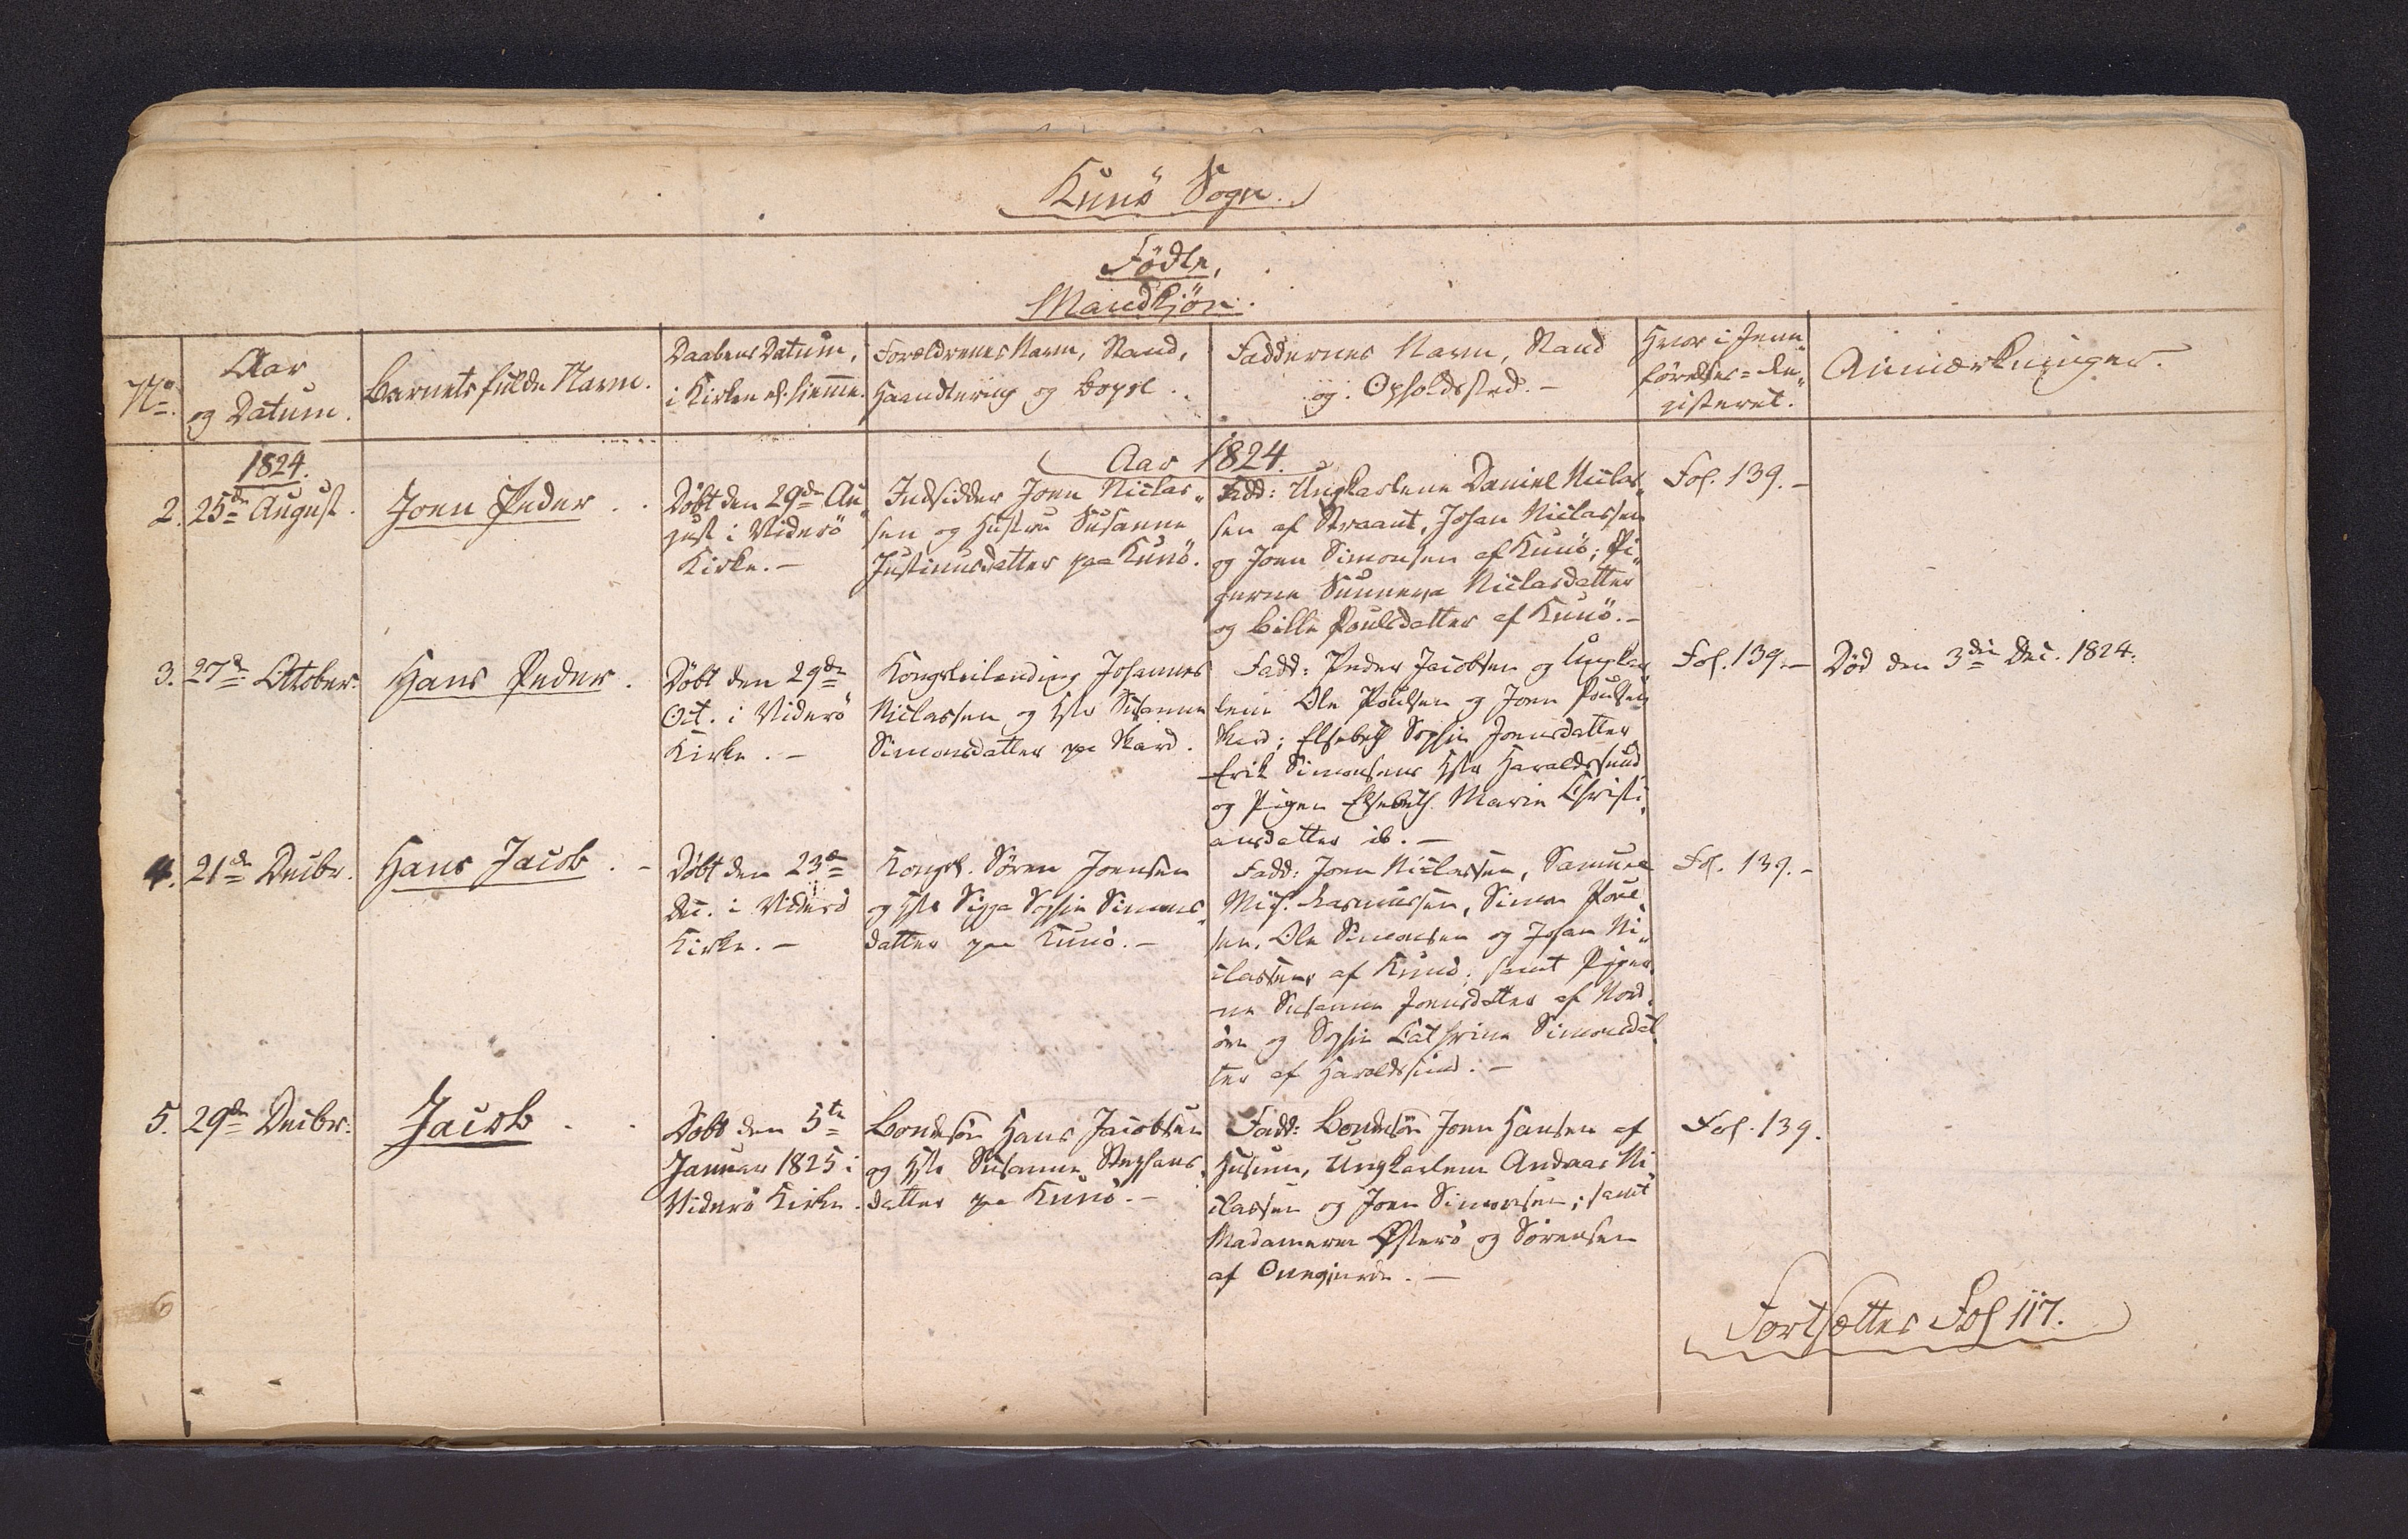 Kunö Sogn.
Födte,
Mandkjön.
No.
Aar
og Datum.
Barnets fulde Navn.
Daabens Datum,
i Kirken el. hjemme.
Forældrenes Navn, Stand,
Haandtering og Bopæl.
Faddernes Navn, Stand
og Opholdssted. -
Hvor i Jevn
førelses-Re-
gisteret.
Anmærkninger.
Aar 1824.
1824.
2.
25de August.
Joen Peder
Döbt den 29de Au
gust i Viderö
Kirke. -
Indsidder Joen Niclas-
sen og Hustru Susanne
Justinusdatter paa Kunö.
Fadd: Ungkarlene Daniel Niclas
sen af Strant, Johan Niclassen
og Joen Simonsen af Kunö; Pi-
gerne Sunneva Niclasdatter
og Bille Poulsdatter af Kunö. -
Fol. 139. -
3.
27de October.
Hans Peder.
Döbt den 29de
Oct. i Viderö
Kirke. -
Kongsleilending Johannes
Niclassen og Hstr Susanne
Simonsdatter paa Skard.
Fadd: Peder Jacobsen og Ungkar
lene Ole Poulsen og Joen Poulsen
Skard; Elsebeth Sophie Joensdatter
Erik Simonsens Hstr Haraldssund
og Pigen Elsebeth Marie Christi-
ansdatter ib. -
Fol. 139. -
Död den 3die Dec. 1824.
4.
21de Decbr.
Hans Jacob. -
Döbt den 23de
Dec. i Viderö
Kirke. -
Kongsl. Sören Joensen
og Hstr Sigga Sophie Simons-
datter paa Kunö. -
Fadd: Joen Niclassen, Samuel
Mich. Rasmussen, Simon Poul-
sen, Ole Simonsen og Johan Ni-
classens af Kunö; samt Piger-
ne Susanne Joensdatter af Nord-
öre og Sophie Cathrine Simonsdat
ter af Haraldssund. -
Fol. 139. -
5.
29de Decbr.
Jacob
Döbt den 5te
Januar 1825 i
Viderö Kirke.
Bondesön Hans Jacobsen
og Hstr Susanne Stephans-
datter paa Kunö. -
Fadd: Bondesön Joen Hansen af
Husum, Ungkarlene Andreas Ni-
classen og Joen Simonsen; samt
Madamerne Østerö og Sörensen
af Onnegjerde. -
Fol. 139.
6
Fortsættes Fol 117.